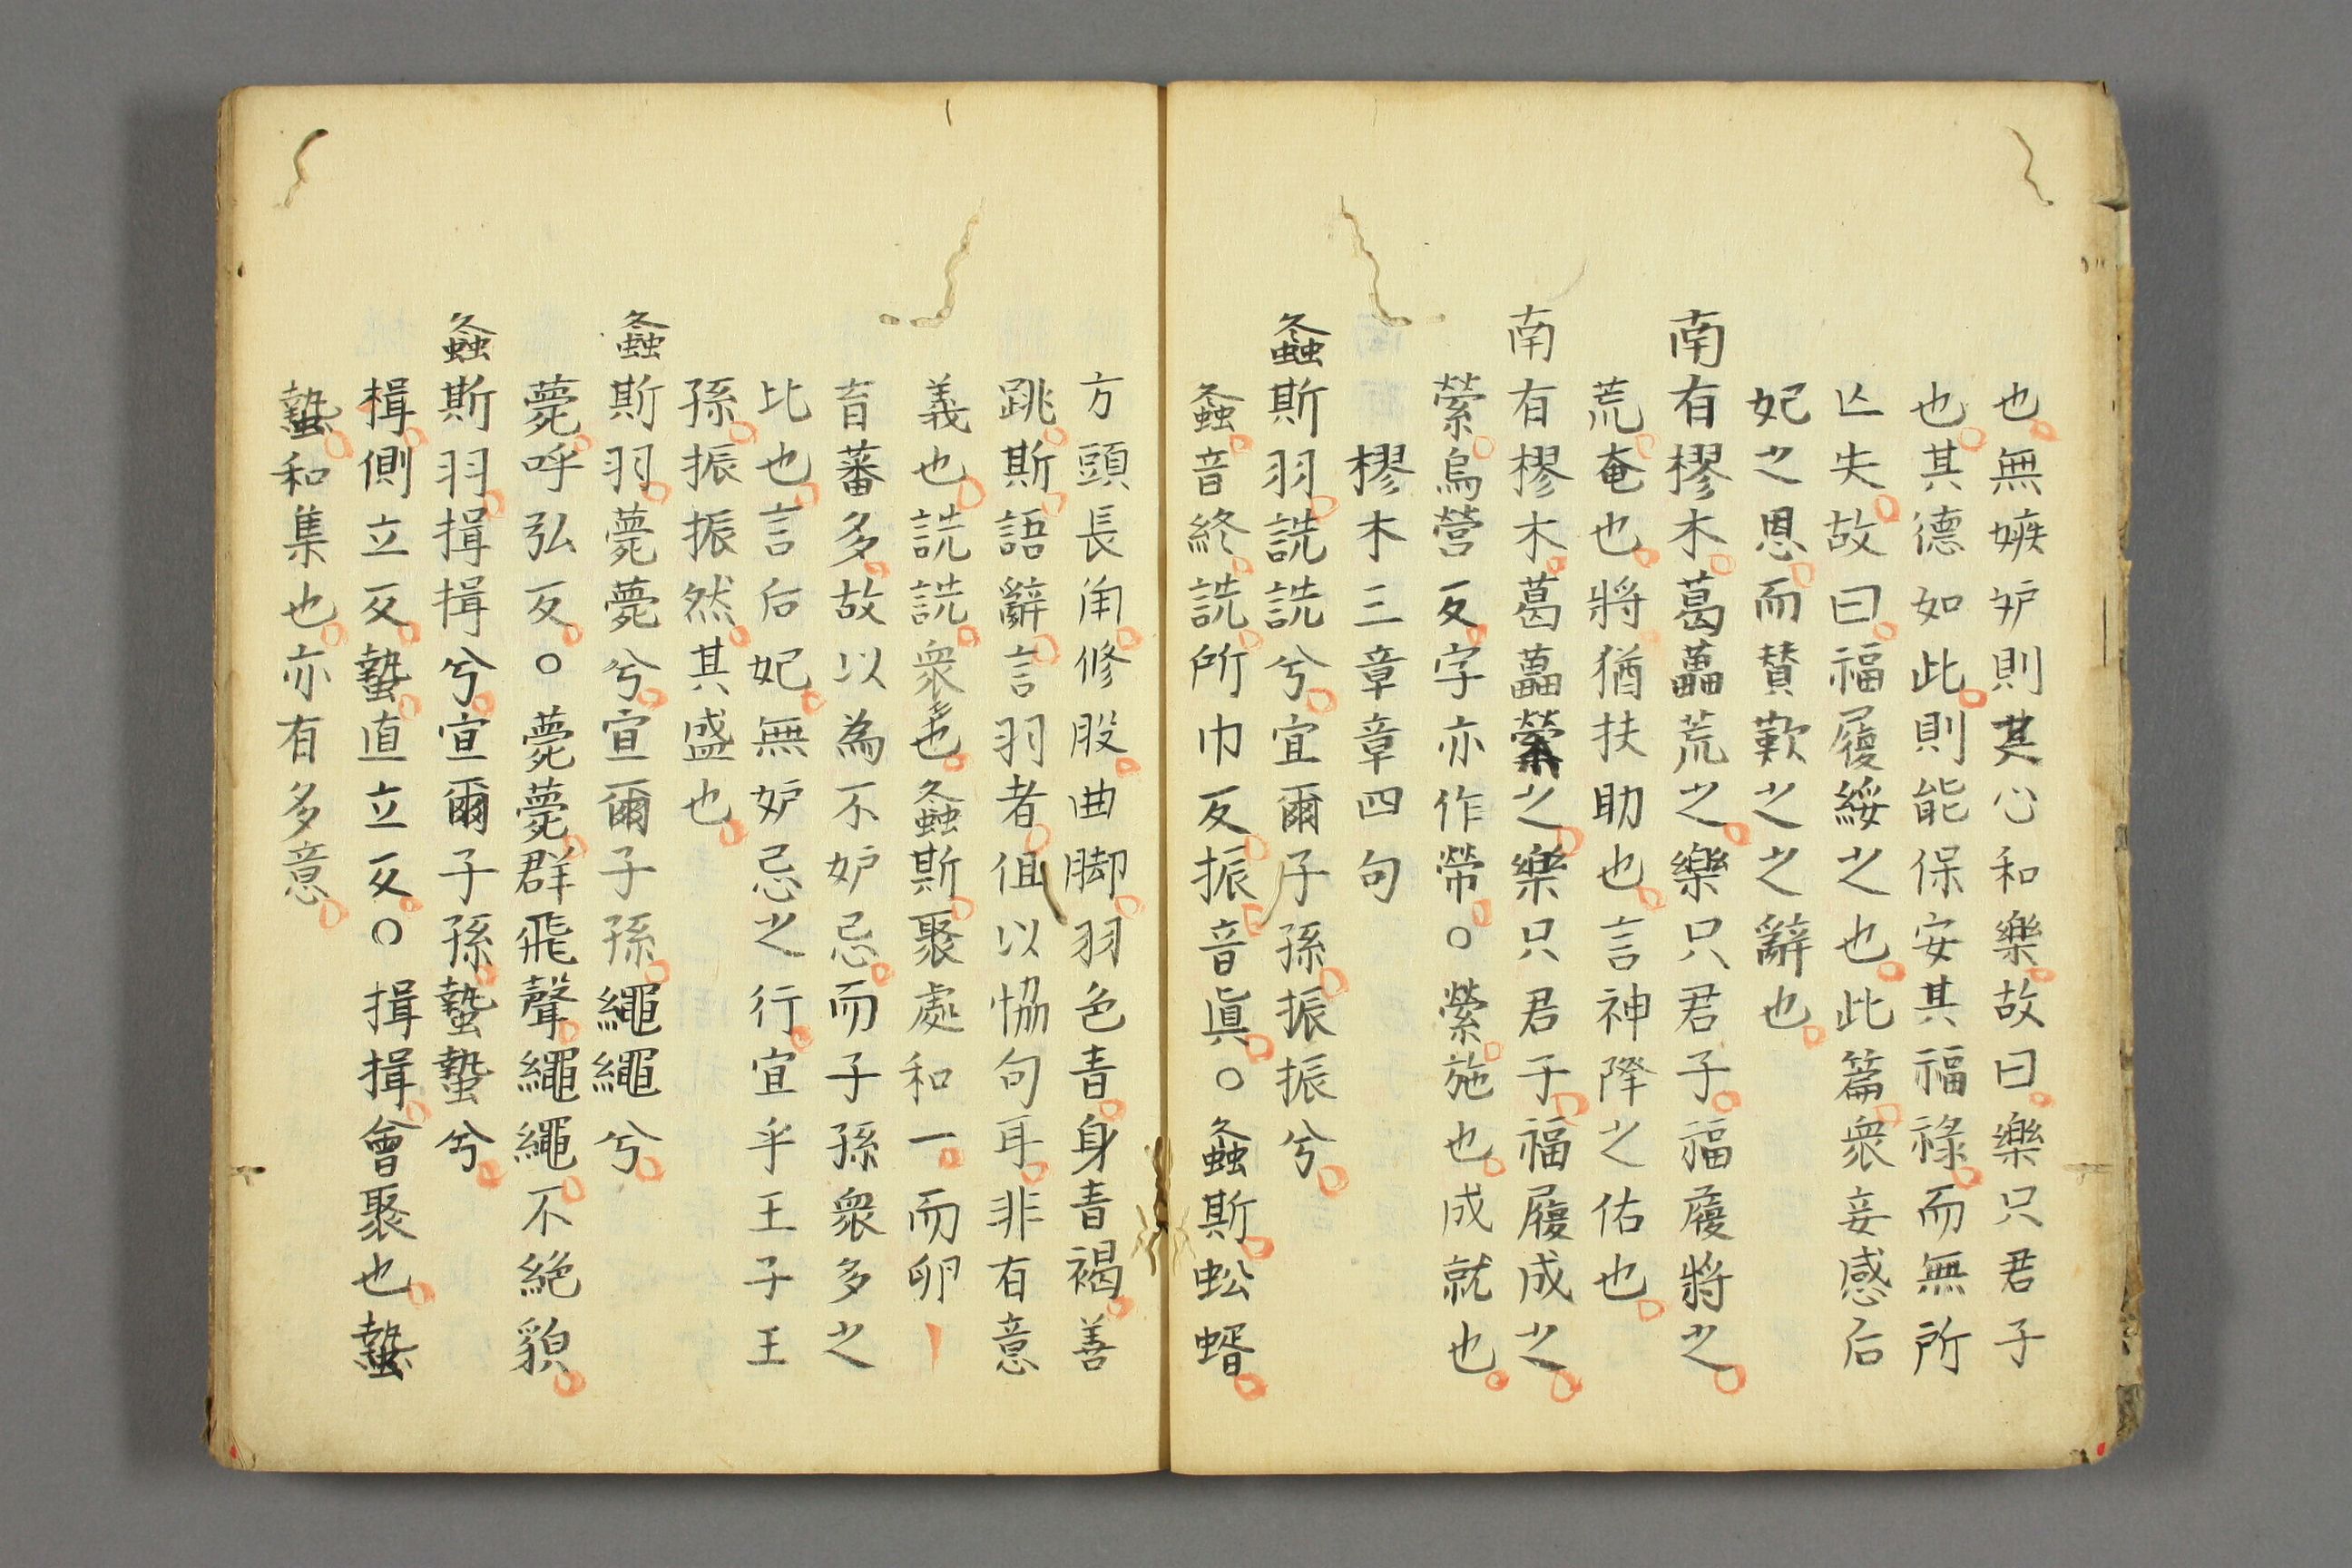 也無嫉妒則其心和樂故曰樂只君子
也其德如此則能保安其福祿而無所
亾失故曰福履綏之也此篇衆妾感后
妃之恩而賛歎之之辭也
南有樛木葛藟荒之樂只君子福履將之
荒奄也將猶扶助也言神降之佑也
南有樛木葛藟縈之樂只君子福履成之
縈烏營反字亦作帶○縈施也成就也
樛木三章章四句
螽斯羽詵詵兮宜爾子孫振振兮
螽音終詵所巾反振音眞○螽斯蚣蝑
方頭長角修股曲脚羽色青身青褐善
跳斯語辭言羽者但以恊句耳非有意
義也詵詵衆也螽斯聚處和一而卵
育蕃多故以為不妒忌而子孫衆多之
比也言后妃無妒忌之行宜乎王子王
孫振振然其盛也
螽斯羽薨薨兮宜爾子孫繩繩兮
薨呼弘反○薨薨群飛聲繩繩不絶貌
螽斯羽揖揖兮宜爾子孫蟄蟄兮
楫側立反蟄直立反○揖揖會聚也蟄
蟄和集也亦有多意